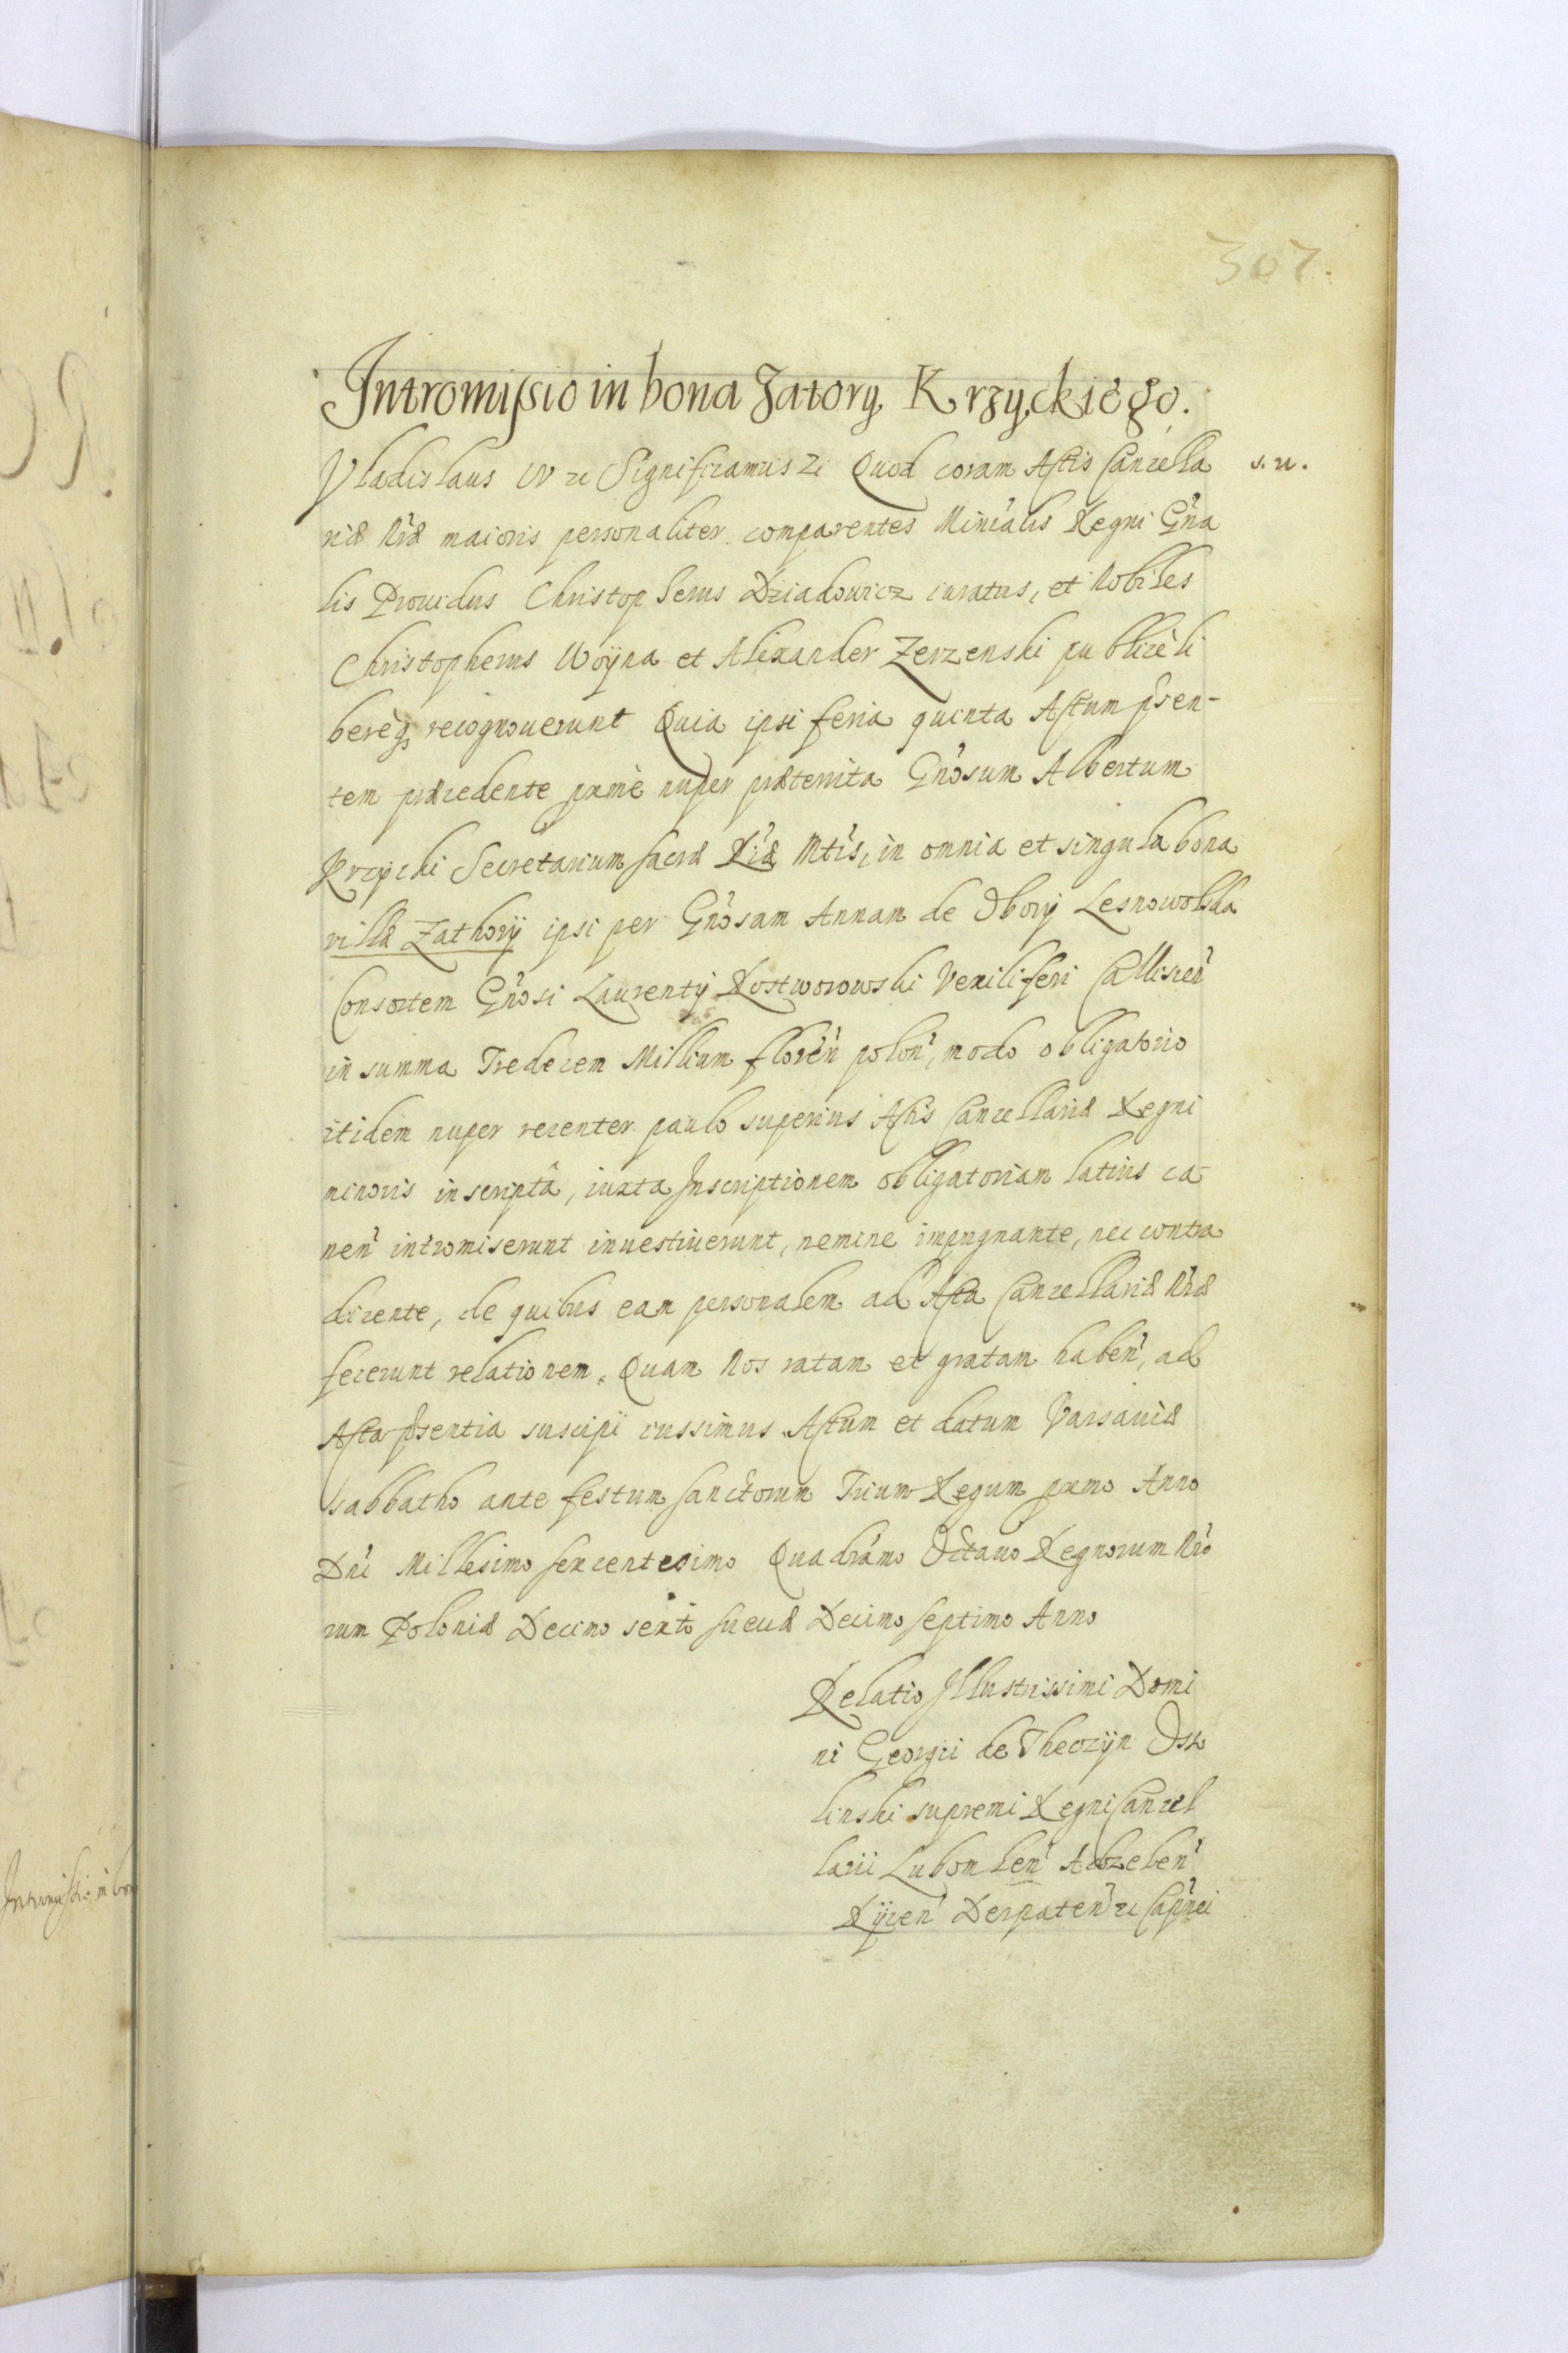 307.
Intromissio in bona Zatory Krzyckiego.
Vladislaus IV etc Significamus etc Quod coram Actis Cancella
riæ Nræ maioris personaliter comparentes Minialis Regni Gna
lis Prouidus Christopherus Dziadowicz iuratus, et Nobiles
Christopherus Woÿna et Alexander Zerzenski publicè li
berèq recognouerunt Quia ipsi feria quinta Actum prsen-
tem præcedente pxmè nuper præterita Gnosum Albertum
Krzycki Secretarium sacræ Riæ Mtis, in omnia et singula bona
villæ Zathory ipsi per Gnosam Annam de Obory Lesnowolska
Consortem Gnosi Laurentÿ Rostworowski Vexiliferi Callisien
in summa Tredecem Millium floren polon, modo obligatorio
itidem nuper recenter paulo superius Actis Cancellariæ Regni
minoris inscriptâ, iuxta Inscriptionem obligatoriam latius ea
nen intromiserunt inuestiuerunt, nemine impugnante, nec contra
dicente, de quibus eam personalem ad Acta Cancellariæ Nræ
fecerunt relationem. Quam Nos ratam et gratam haben, ad
Acta prsentia suscipi iussimus. Actum et datum Varsauiæ
sabbatho ante festum sanctorum Trium Regum pxmo Anno
Dni Millesimo sexcentesimo Quadramo Octauo Regnorum Nro
rum Poloniæ Decimo sexto sueciæ Decimo septimo Anno
Relatio Illustrissimi Domi
ni Georgii de Theczÿn Osso
linski supremi Regni Cancel
larii Lubomlen Adzelen
Rÿcen Derpaten etc Capnei
s. n.